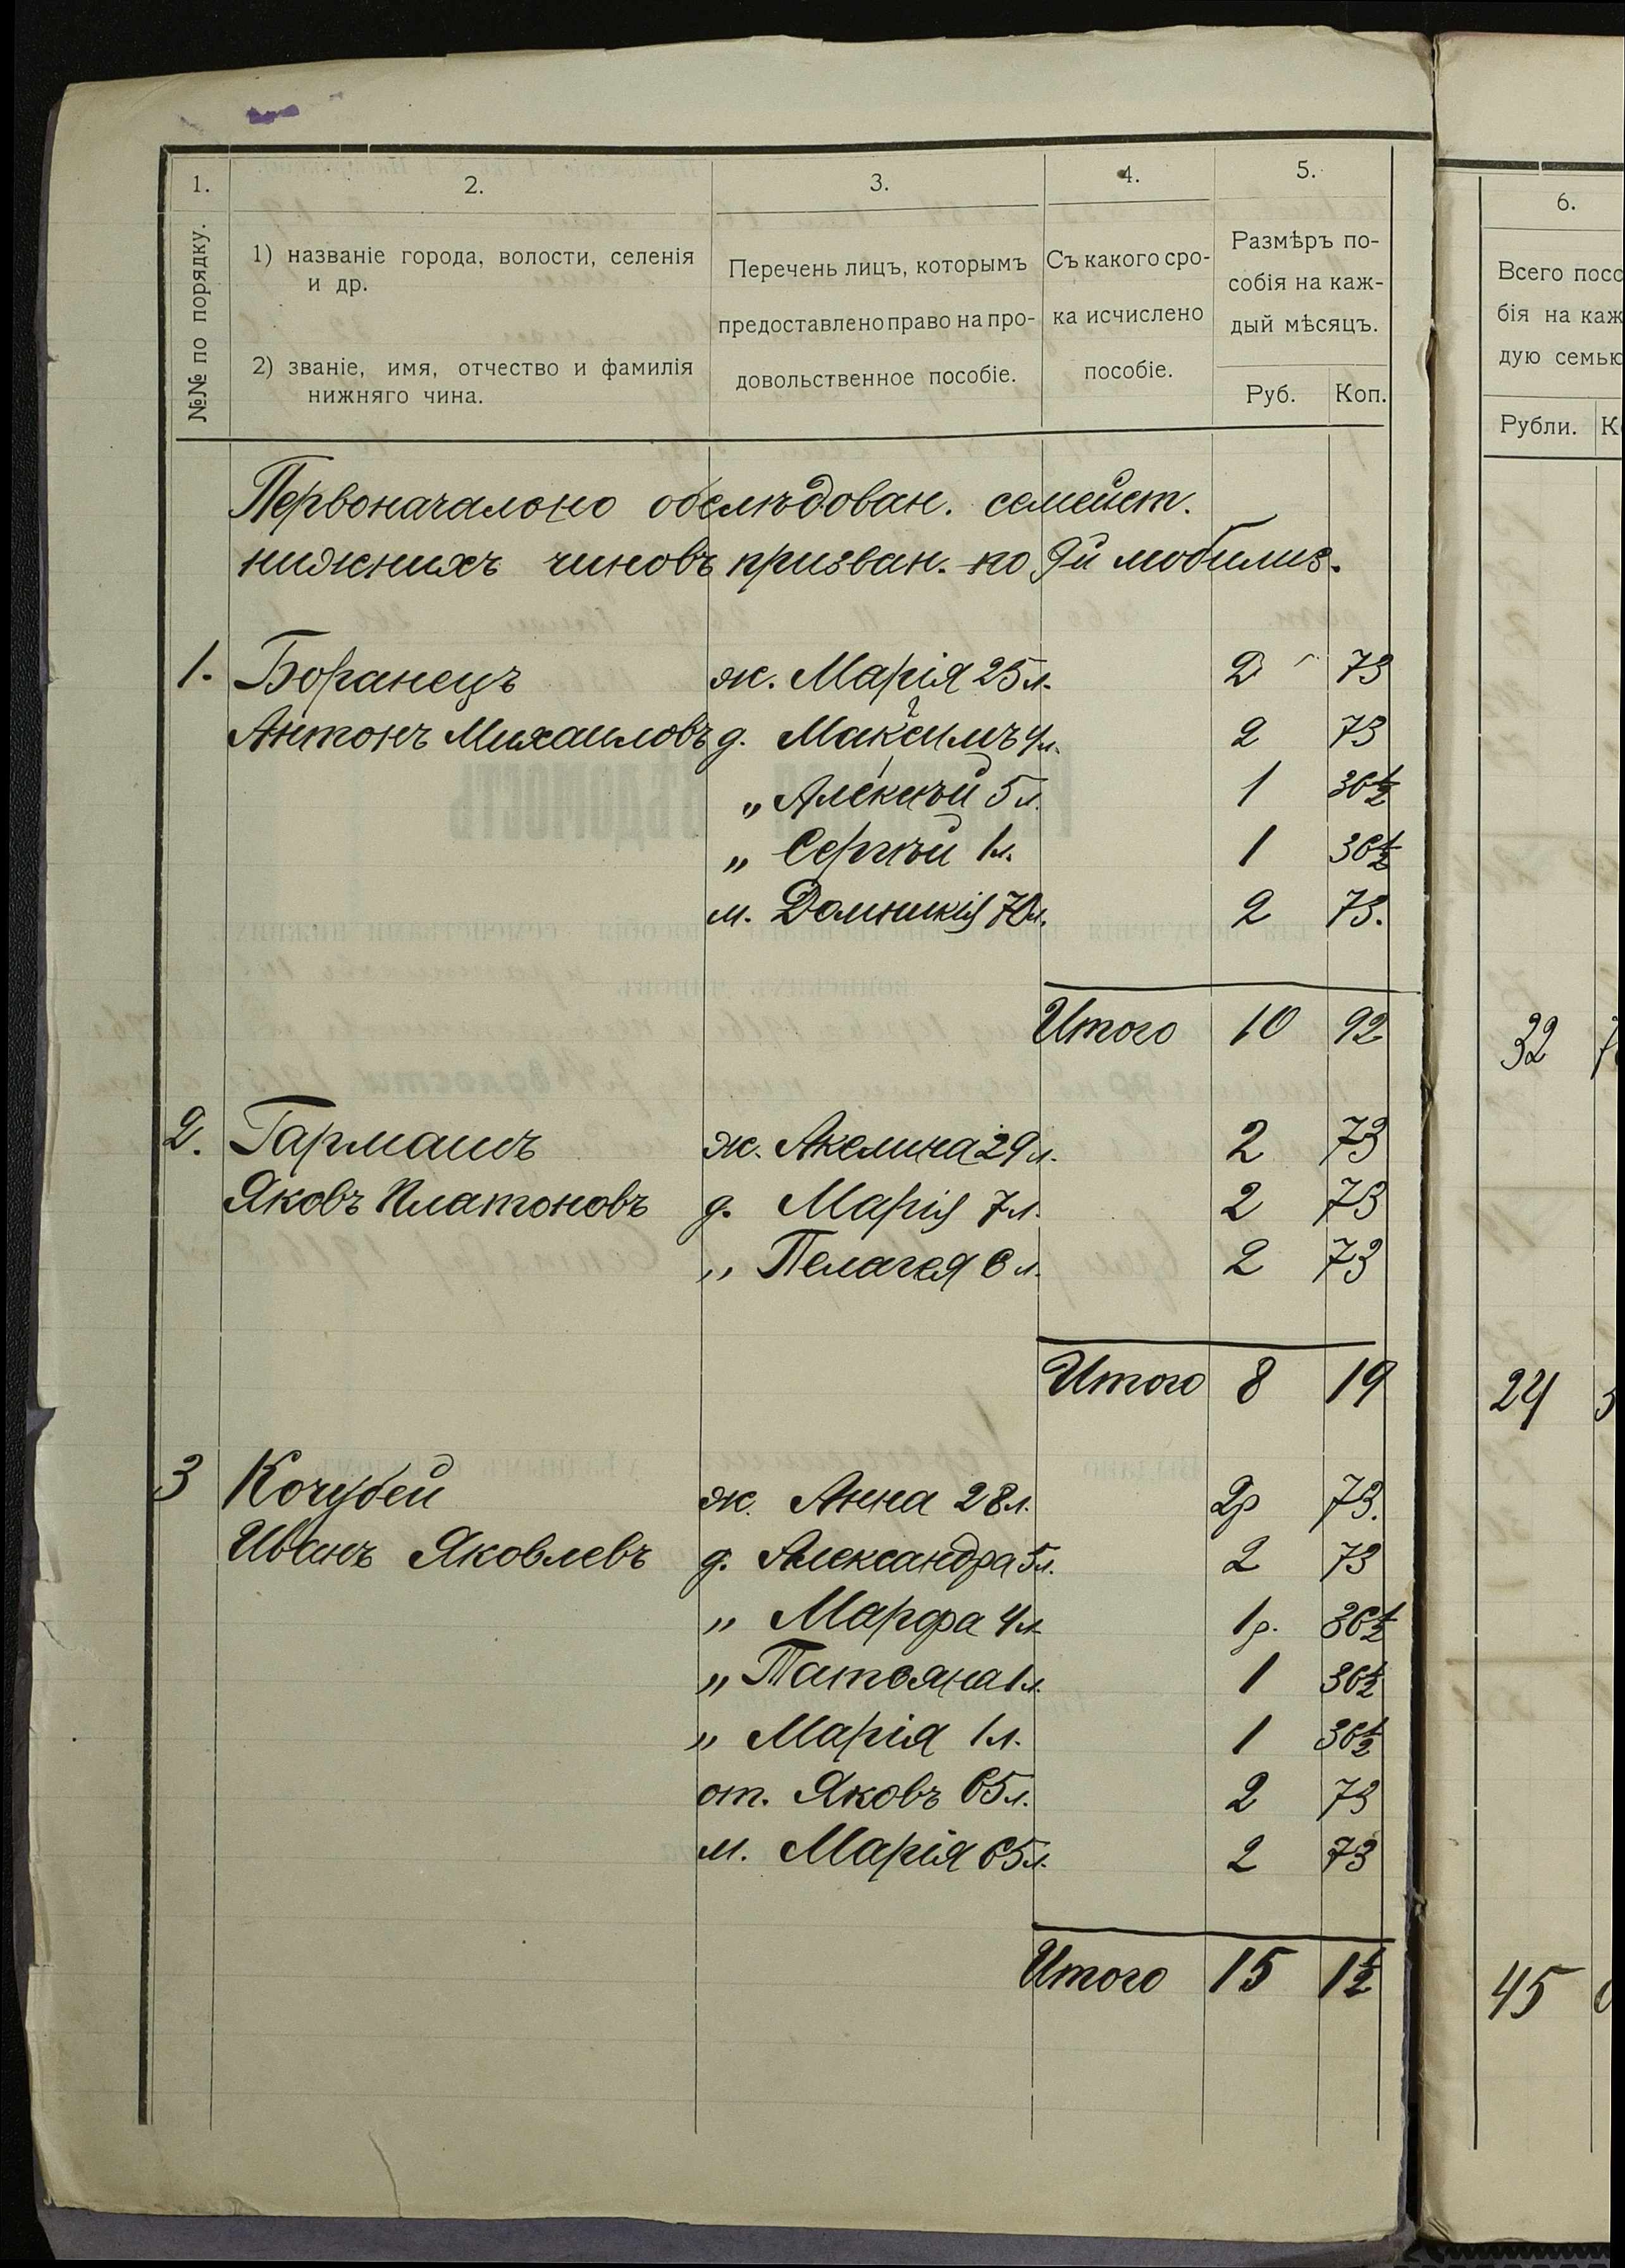 1.
2.
3.
4.
5.
6.
№№ по порядку.
1) названіе города, волости, селенія
и др.
2) званіе, имя, отчество и фамилія
нижняго чина.
Перечень лицъ, которымъ
предоставлено право на про-
довольственное пособіе.
Съ какого сро-
ка исчислено
пособіе.
Размѣръ по-
собія на каж-
дый мѣсяцъ.
Руб. Коп.
Всего посо
бія на каж
дую семью
Рубли. К
Первоначально обслѣдован. семейст.
нижнихъ чиновъ призван. по 9й мобилиз.
1. Боранецъ ж. Марія 25 л. 2 73
Антонъ Михаиловъ д. Максимъ 9 л. 2 73
„ Алексѣй 5 л. 1 36½
„ Сергѣй 1 л. 1 36½
м. Домникія 70 л. 2 73.
Итого 10 92 32
2. Гармашъ ж. Акелина 29 л. 2 73
Яковъ Платоновъ д. Марія 7 л. 2 73
„ Пелагея 6 л. 2 73
Итого 8 19 24
3 Кочубей ж. Анна 28 л. 2р 73.
Иванъ Яковлевъ д. Александра 5 л. 2 73
„ Марфа 4 л. 1р. 36½
„ Татьяна 1 л. 1 36½
„ Марія 1 л. 1 36½
от. Яковъ 65 л. 2 73
м. Марія 65 л. 2 73
Итого 15 1½ 45